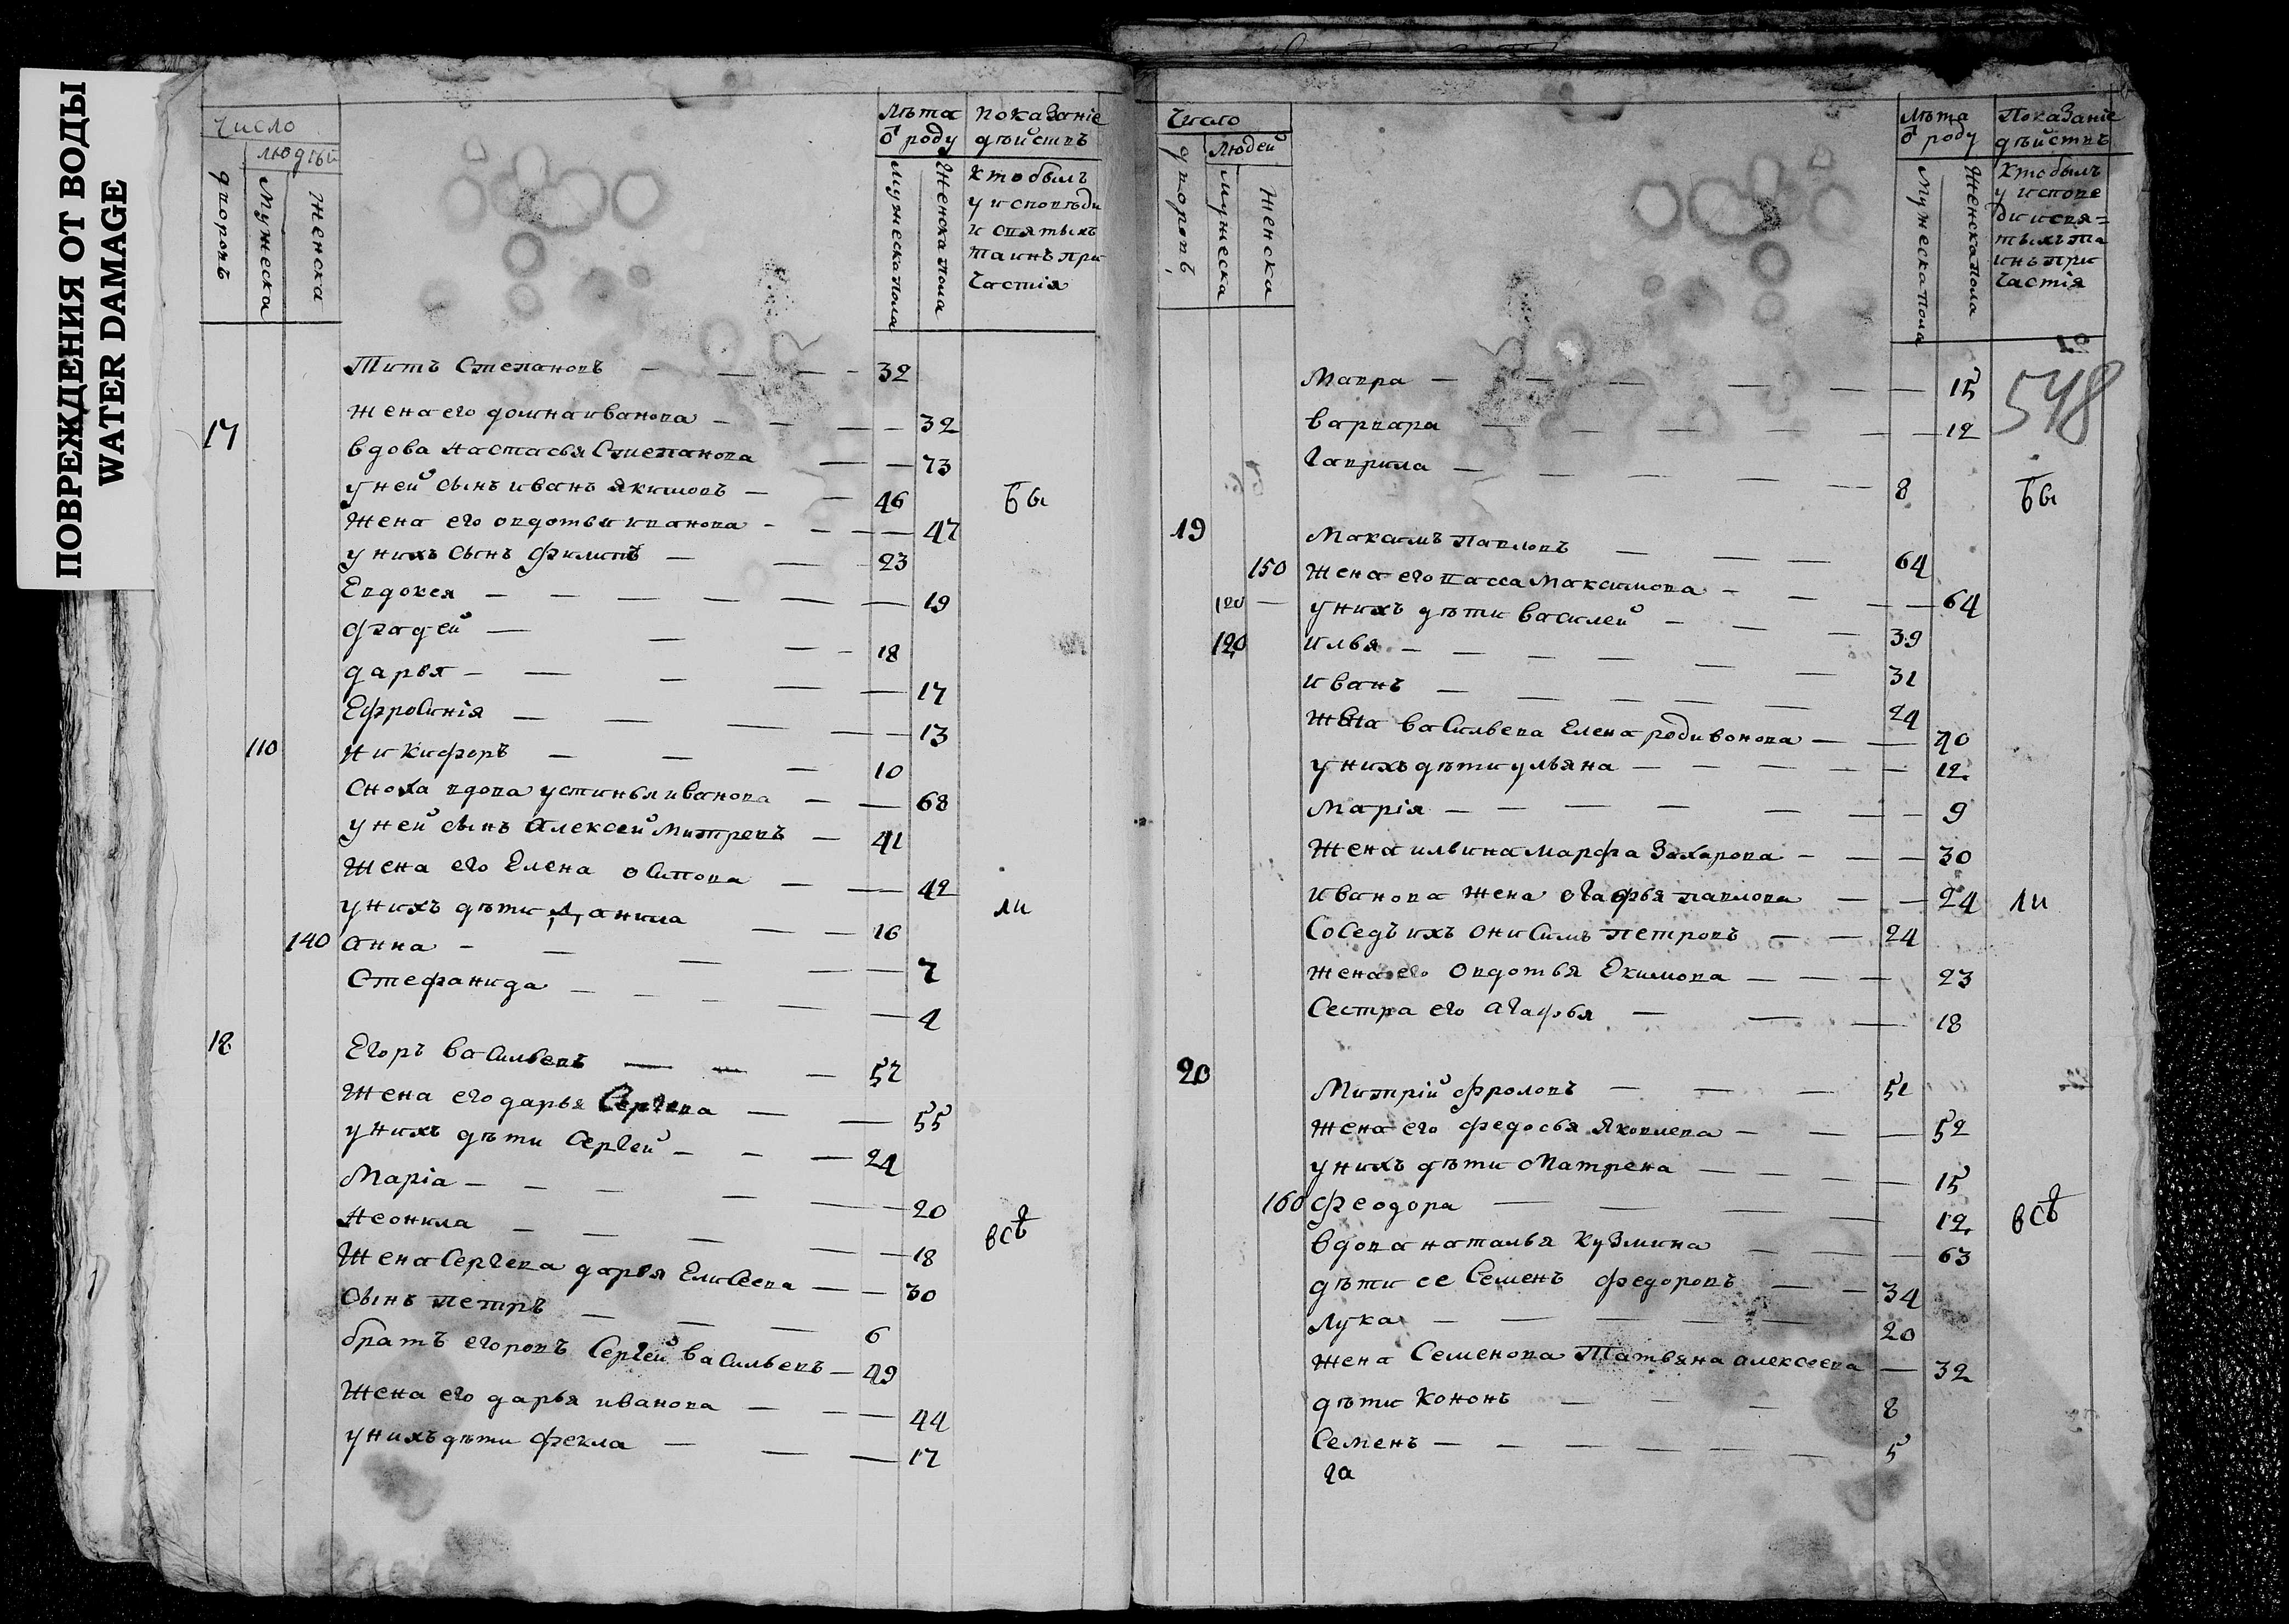 ПОВРЕЖДЕНИЯ ОТ ВОДЫ
WATER DAMAGE
Число
людѣй
дворовъ
Мужеска
Женска
Лѣта
ѿ роду
Мужеска пола
Женска пола
показаніе
дѣйствъ
Кто былъ
у исповѣди
и святыхъ
таинъ при
частія
Титъ Степановъ — — — - 32
жена его домна иванова — — — — 32
17 вдова настасья Степанова — — 73
у ней сынъ иванъ Якимовъ — — 46 бы
жена его овдотьи иванова - — — 47
у нихъ сынъ филипъ — — 23
Евдокея — — — — — — 19
фадей — — — - 18
дарья — — — — — 17
Ефросинія — — — — — 13
110 Никифоръ — — — 10
сноха вдова устинья иванова — — 68
у ней сынъ Алексей Митревъ — 41
жена его Елена осипова — — 42
у нихъ дѣти Данила — — 16 ли
140 анна - — — — — 7
Стефанида — — — — — 4
18 Егоръ васильевъ — — — 57
жена его дарья Сергева — — 55
у нихъ дѣти Сергей — — — 24
Маріа — — — — — — 20
Неонила — — — — — 18 всѣ
жена Сергева дарья Елисеева — — 30
сынъ петръ — — — 6
братъ егоровъ Сергей васильевъ — 49
жена его дарья иванова — — — 44
у нихъ дѣти фекла — — — 17
Число
Людей
дворовъ
Мужеска
Женска
Лѣта
ѿ роду
Мужеска пола
Женска пола
Показаніе
дѣйствъ
Кто былъ
у испове
ди и свя=
тыхъ та
инъ при
частія
548
Мавра — — — — — — 15
варвара — — — — — — 12
гаврила — — — — — 8 бы
19 Максимъ Павловъ — — — 64
150 жена его васса Максимова — — — — 64
120 — у нихъ дѣти василей — — — 39
120 илья — — — — — — 31
иванъ — — — — — 24
жена васильева Елена родивонова — — 40
у нихъ дѣти ульяна — — — — — 12
Марія — — — — — — — 9
жена ильина марфа Захарова — — — 30
иванова жена огафья павлова — — 24 ли
Соседъ ихъ онисимъ петровъ — — 24
жена его овдотья Екимова — — — 23
Сестра его агафья — — — 18
20 Митрій фроловъ — — — 51
жена его федосья Яковлева — — — 52
у нихъ дѣти Матрена — — — — 15
160 феодора — — — — 12 всѣ
вдова наталья Кузмина — — — 63
дѣти ее Семенъ федоровъ — — 34
Лука — — — — — 20
жена Семенова Татьяна алексеева — 32
дѣти Кононъ — — — 8
Семенъ — — — — — — 5
га